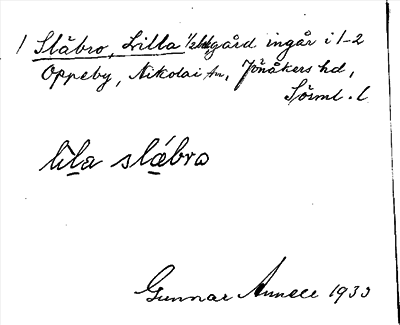 1 Släbro, Lilla 1/2 gård ingår i 1-2
Oppeby, Nikolai sn, Jönåkers hd,
Sörml. l.
lila släbro
Gunnar Annell 1933